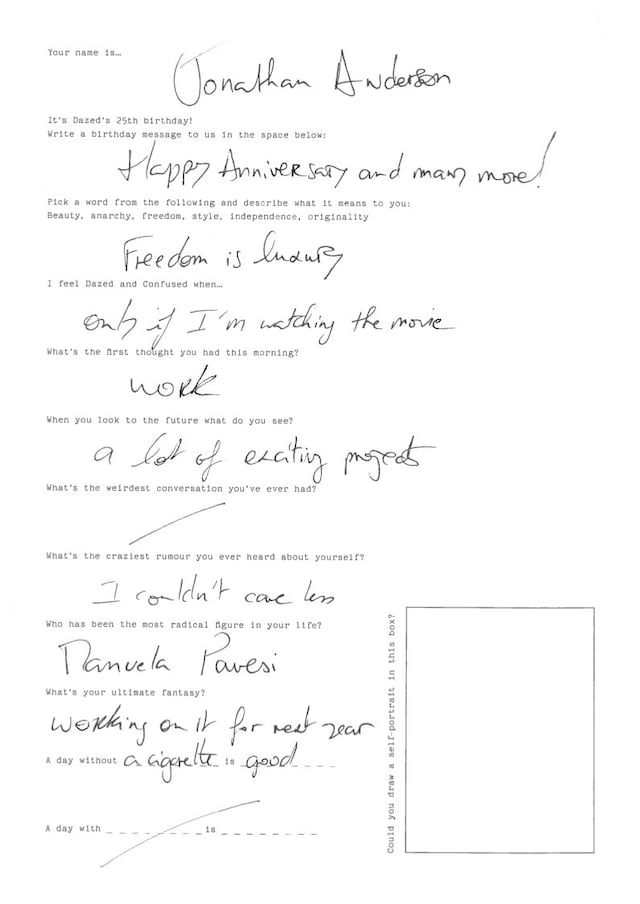 Your name is…
Jonathan Anderson
It's Dazed's 25th birthday!
Write a birthday message to us in the space below:
Happy Anniversary and many more!
Pick a word from the following and describe what it means to you:
Beauty, anarchy, freedom, style, independence, originality
Freedom is luxury
I feel Dazed and Confused when…
only if I'm watching the movie
What's the first thought you had this morning?
work
When you look to the future what do you see?
a lot of exciting projects
What's the weirdest conversation you've ever had?
What's the craziest rumour you ever heard about yourself?
I couldn't care less
Who has been the most radical figure in your life?
Manuela Pavesi
What's your ultimate fantasy?
working on it for next year
A day without a cigarette is good _ _ _
A day with _ _ _ _ _ _ _ _ is _ _ _ _ _ _ _ _
Could you draw a self-portrait in this box?